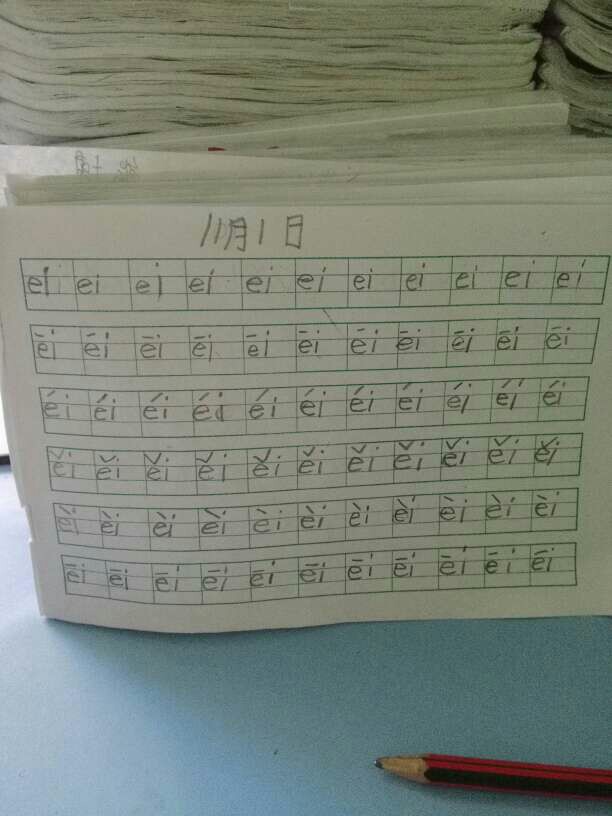 11月1日
ei ei ei ei ei ei ei ei ei ei ei
ēi ēi ēi ēi ēi ēi ēi ēi ēi ēi ēi
éi éi éi éi éi éi éi éi éi éi éi
ěi ěi ěi ěi ěi ěi ěi ěi ěi ěi ěi
èi èi èi èi èi èi èi èi èi èi èi
ēi ēi ēi ēi ēi ēi ēi ēi ēi ēi ēi